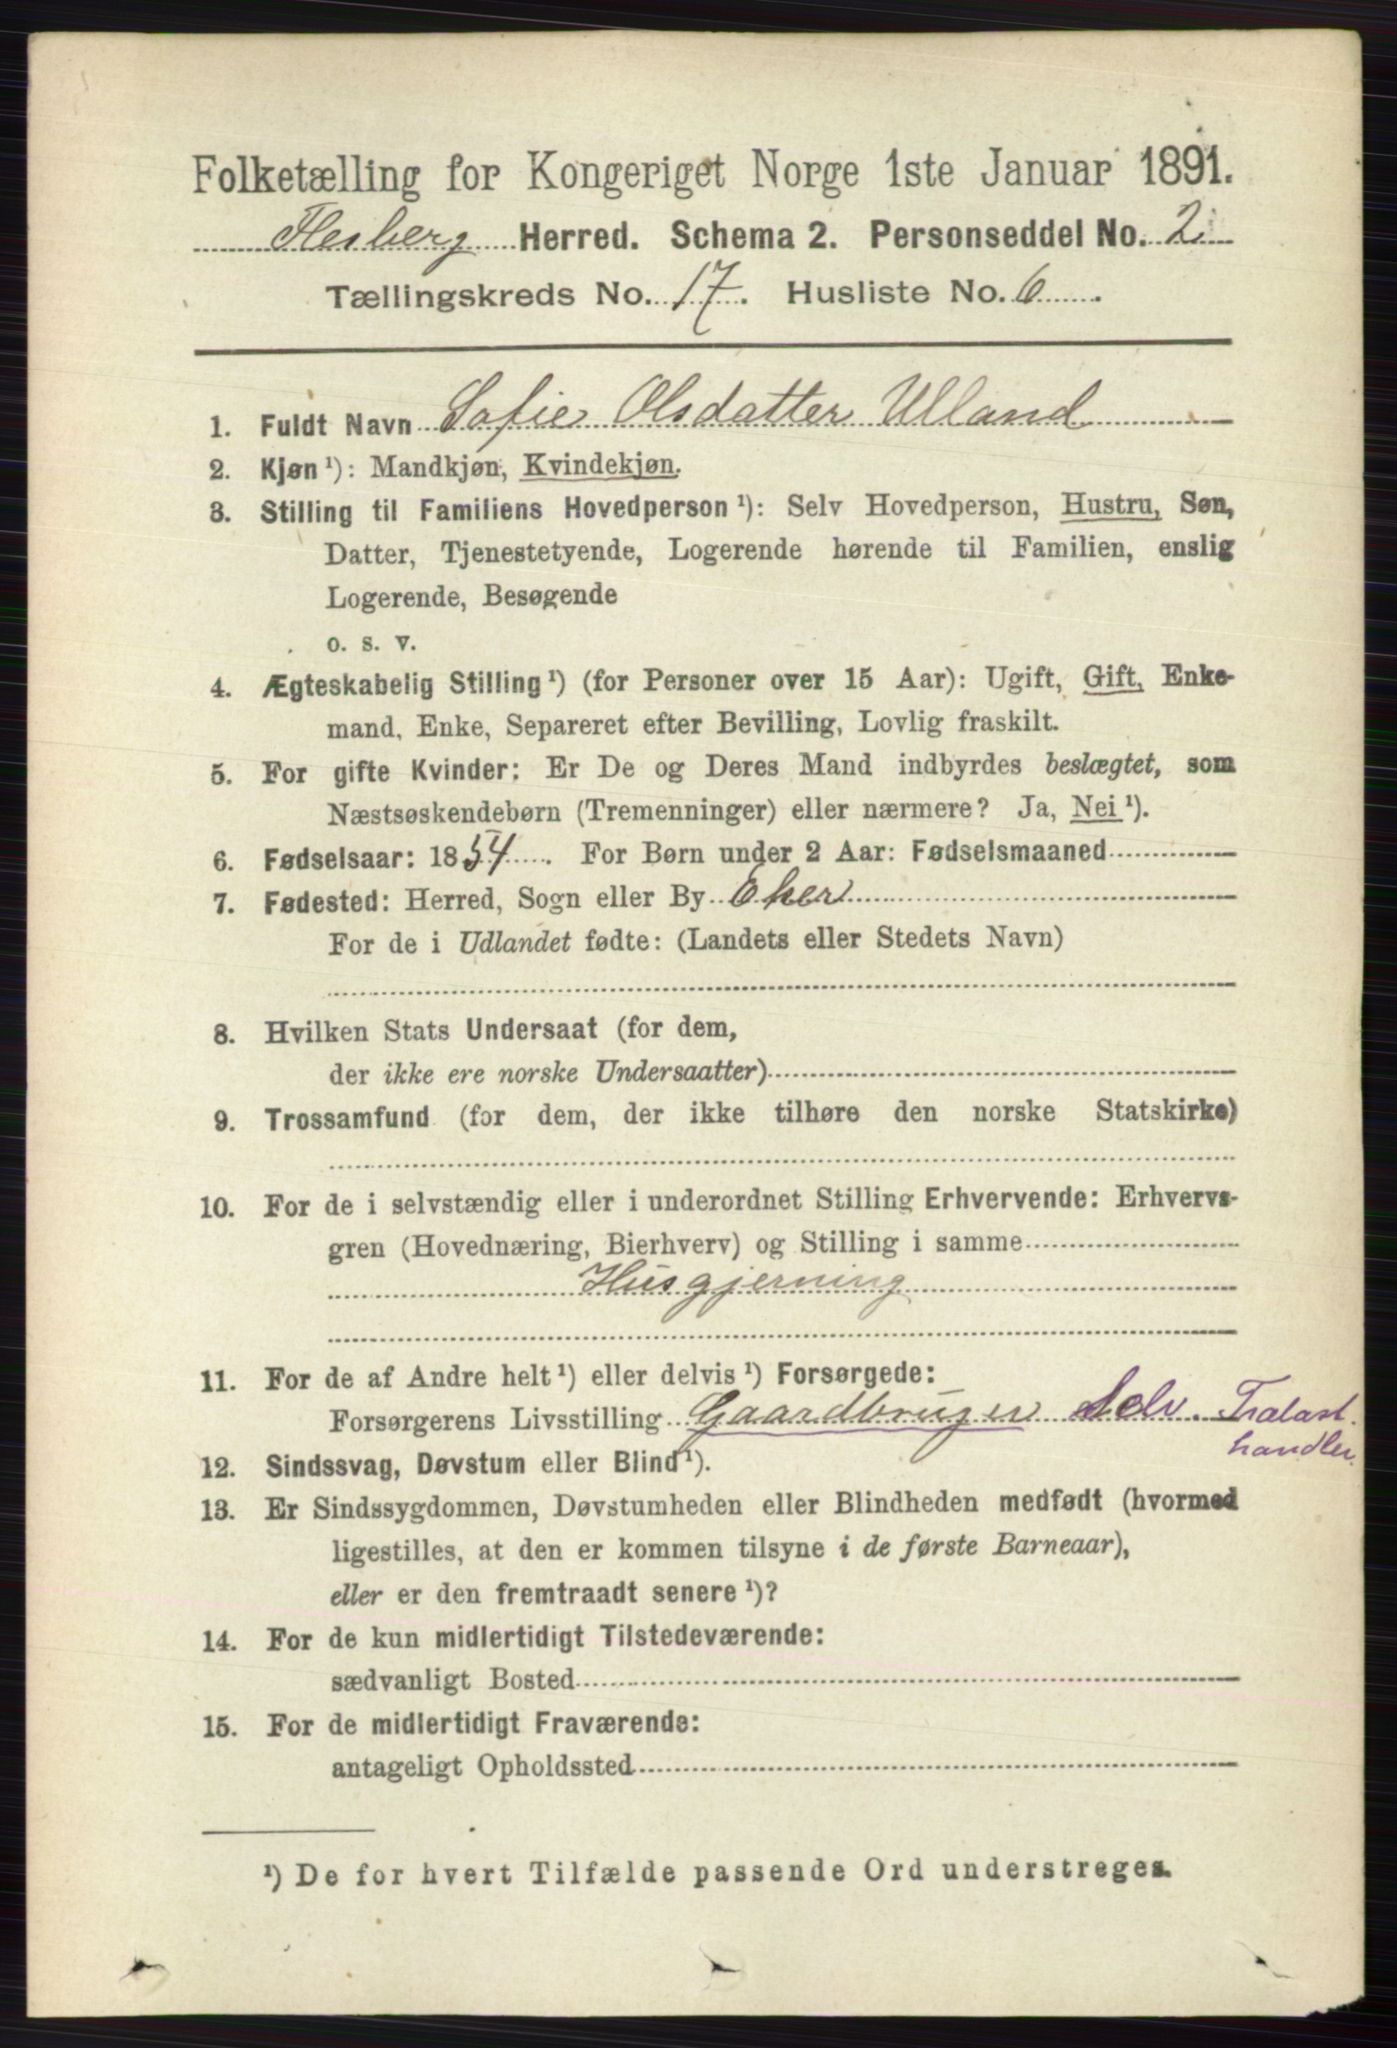 Folketælling for Kongeriget Norge 1ste Januar 1891.
Flesberg Herred. Schema 2. Personseddel No. 2
Tællingskreds No. 17. Husliste No. 6.
1. Fuldt Navn Sofie Olsdatter Ulland
2. Kjøn ¹): Mandkjøn, Kvindekjøn.
3. Stilling til Familiens Hovedperson ¹): Selv Hovedperson, Hustru, Søn,
Datter, Tjenestetyende, Logerende hørende til Familien, enslig
Logerende, Besøgende
o. s. v.
4. Ægteskabelig Stilling ¹) (for Personer over 15 Aar): Ugift, Gift, Enke-
mand, Enke, Separeret efter Bevilling, Lovlig fraskilt.
5. For gifte Kvinder: Er De og Deres Mand indbyrdes beslægtet, som
Næstsøskendebørn (Tremenninger) eller nærmere? Ja, Nei ¹).
6. Fødselsaar: 1854. For Børn under 2 Aar: Fødselsmaaned
7. Fødested: Herred, Sogn eller By Eker
For de i Udlandet fødte: (Landets eller Stedets Navn)
8. Hvilken Stats Undersaat (for dem,
der ikke ere norske Undersaatter)
9. Trossamfund (for dem, der ikke tilhøre den norske Statskirke)
10. For de i selvstændig eller i underordnet Stilling Erhvervende: Erhvervs-
gren (Hovednæring, Bierhverv) og Stilling i samme
Husgjerning
11. For de af Andre helt ¹) eller delvis ¹) Forsørgede:
Forsørgerens Livsstilling Gaardbruger Selv. Trælast
handler.
12. Sindssvag, Døvstum eller Blind ¹).
13. Er Sindssygdommen, Døvstumheden eller Blindheden medfødt (hvormed
ligestilles, at den er kommen tilsyne i de første Barneaar),
eller er den fremtraadt senere ¹)?
14. For de kun midlertidigt Tilstedeværende:
sædvanligt Bosted
15. For de midlertidigt Fraværende:
antageligt Opholdssted
¹) De for hvert Tilfælde passende Ord understreges.